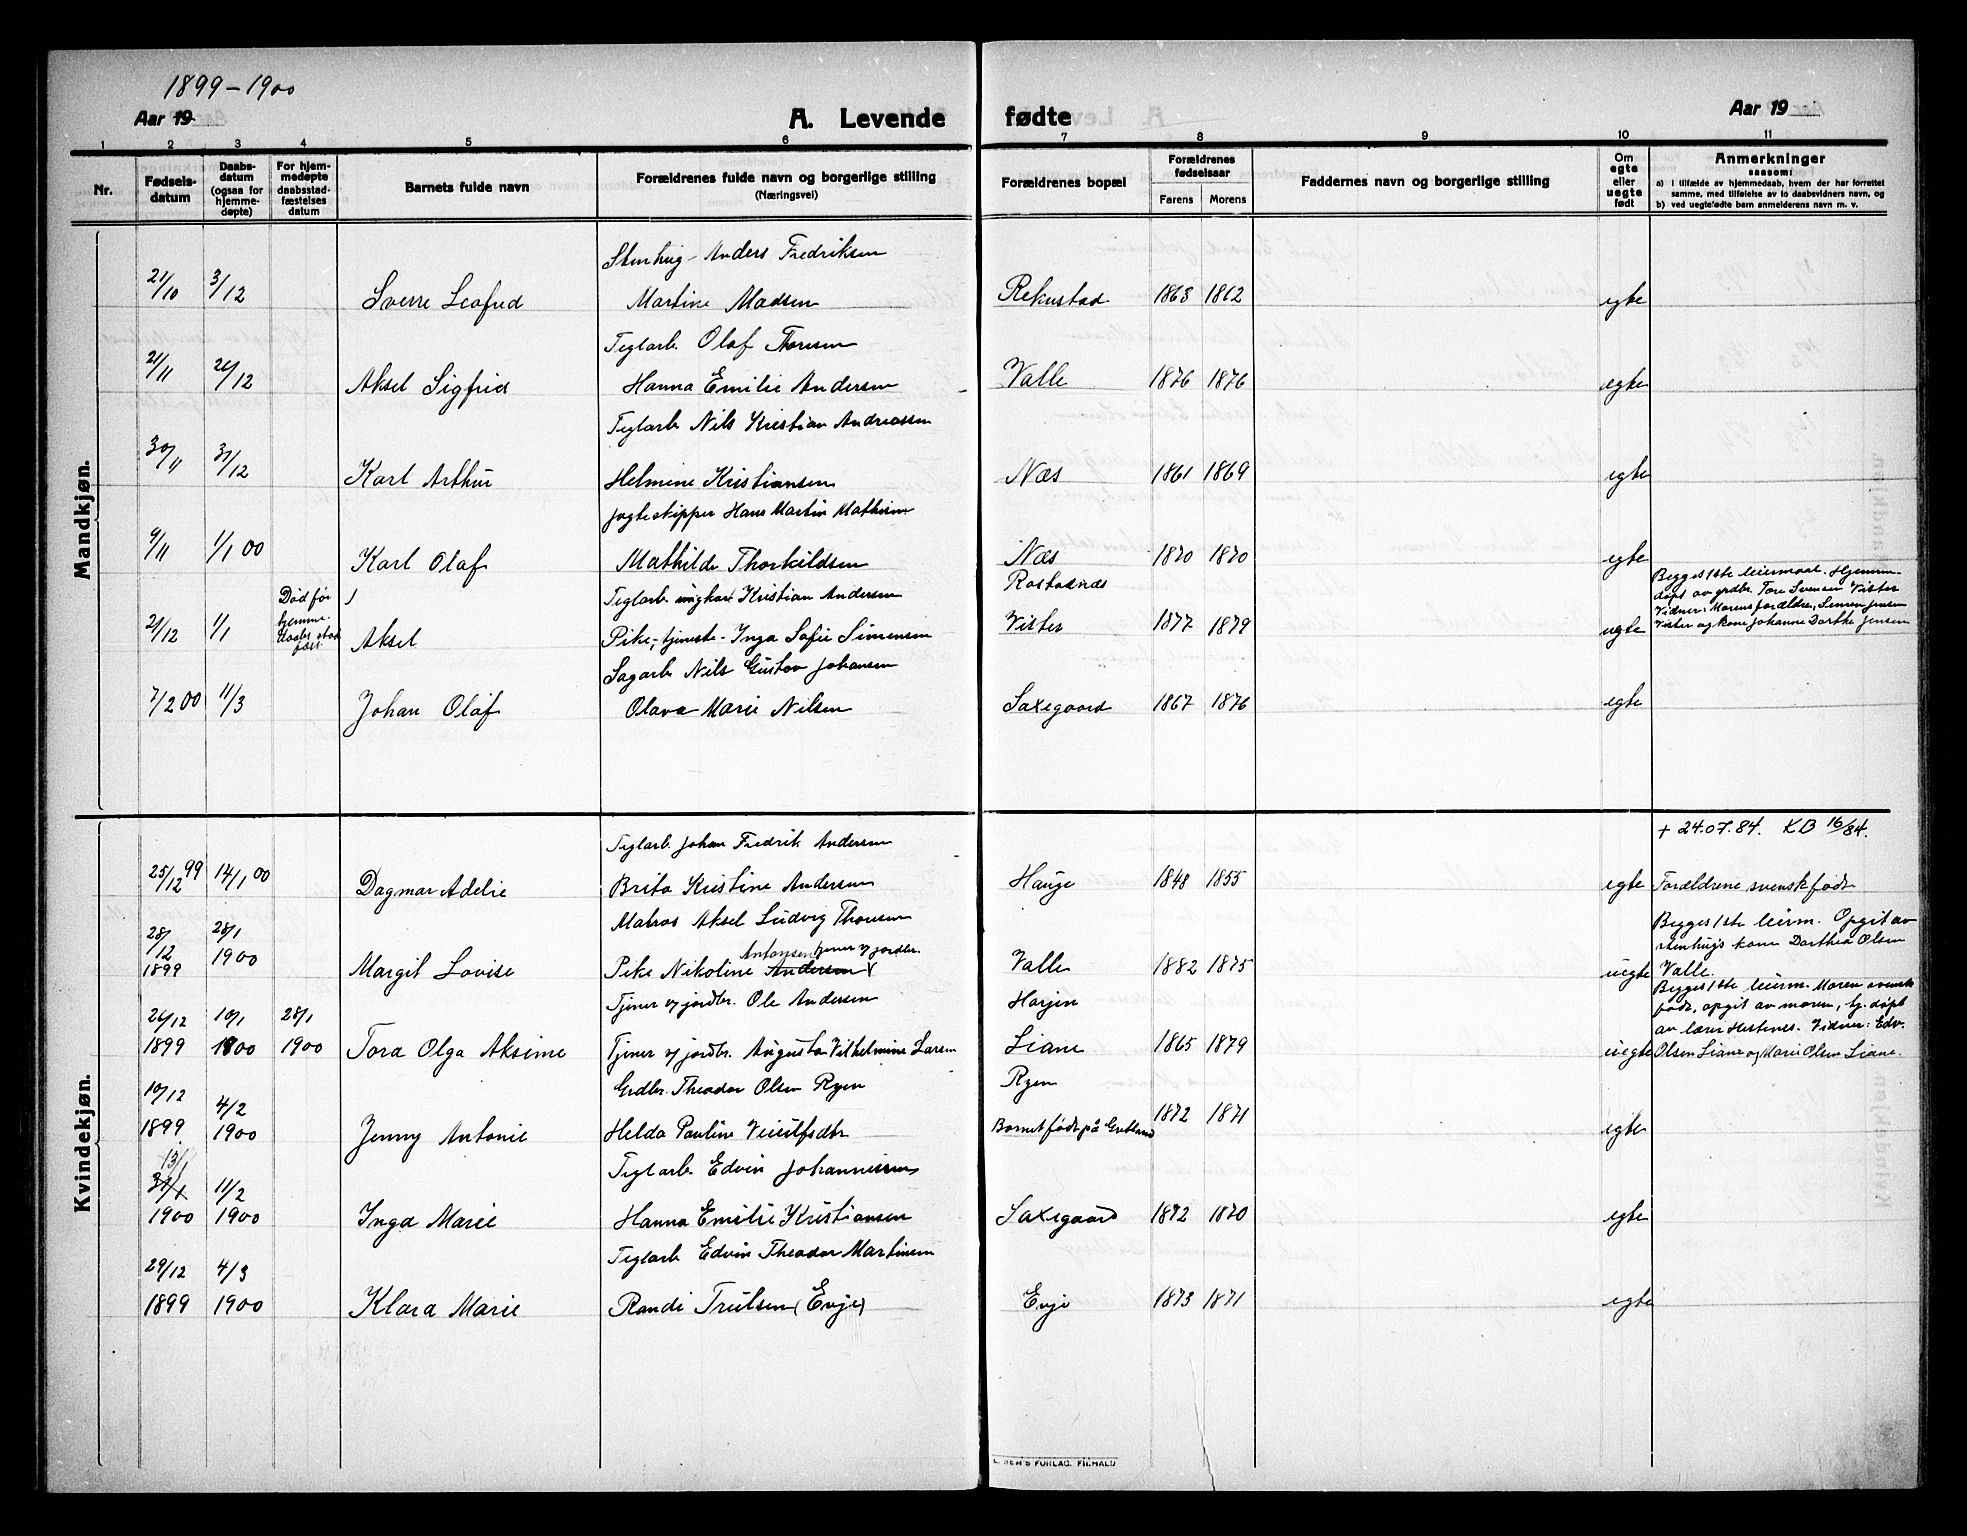 1899-1900
Aar 19
A. Levende
fødte
Aar 19
1 2 3 4 5 6 7 8 9 10 11
Nr.
Fødsels-
datum
Daabs-
datum
(ogsaa for
hjemme-
døpte)
For hjem-
medøpte
daabsstad-
fæstelses
datum
Barnets fulde navn
Forældrenes fulde navn og borgerlige stilling
(Næringsvei)
Forældrenes bopæl
Forældrenes
fødselsaar
Farens Morens
Faddernes navn og borgerlige stilling
Om
egte
eller
uegte
født
Anmerkninger
saasom:
a) i tilfælde av hjemmedaab, hvem der har forrettet
samme, med tilføielse av to daabsvidners navn, og
b) ved uegtefødte barn anmelderens navn m. v.
Mandkjøn.
Stenhug- Anders Fredriksen
21/10 3/12 Sverre Leofred Martine Madsen Rekustad 1863 1862 egte
Teglarb. Olaf Thoresen
21/11 26/12 Aksel Sigfrid Hanna Emilie Andersen Valle 1876 1876 egte
Teglarb Nils Kristian Andreassen
30/11 31/12 Karl Arthur Helmine Kristiansen Næs 1861 1869 egte
Jagteskipper Hans Martin Mathisen
9/11 1/1 00 Karl Olaf Mathilde Thorkildsen Næs 1870 1870 egte
Død før
hjemme-
daabs stad
fæst.
Teglarb. ungkar Kristian Andersen Rostadnes
21/12 1/1 Aksel Pike, tjeneste- Inga Sofie Simensen Vister 1877 1879 uegte
Begges 1ste leiermaal. Hjemme-
døpt av grdbr. Tore Svensen Vister
Vidner: Morens forældre, Simen Jensen
Vister og kone Johanne Dorthe Jensen
Sagarb Nils Gustav Johansen
7/2 00 11/3 Johan Olaf Olava Marie Nilsen Saxegaard 1867 1876 egte
Kvindekjøn.
+ 24.07.84. KB 16/84.
Teglarb. Johan Fredrik Andersen
25/12 99 14/1 00 Dagmar Adelie Brita Kristine Andersen Hauge 1848 1855 egte Forældrene svenskfødt
Matros Aksel Ludvig Thoresen
Antonsen tjener v jordbr.
28/12 1899 28/1 1900 Margit Lovise Pike Nikoline Andersen Valle 1882 1875 uegte
Begges 1ste leierm. Opgit av
stenhugs kone Dorthea Olsen
Valle.
Tjener v jordbr. Ole Andersen Harjen
26/12 1899 10/1 1900 28/1 1900 Tora Olga Aksime Tjener v jordbr. Augusta Vilhelmine Larsen Liane 1865 1879 uegte
Begges 1ste leierm. Moren svensk
født, opgit av moren, hj. døpt
av lærer Hestenes. Vidner: Edv.
Olsen Liane og Marie Olsen Liane.
Grdbr. Theodor Olsen Ryen Ryen
10/12 1899 4/2 1900 Jenny Antonie Helda Pauline Barnet født på 1872 1871 egte
Teglarb Edvin Johannessen
13/1 31/1 1900 11/2 1900 Inga Marie Hanna Emilie Kristiansen Saxegaard 1872 1870 egte
Teglarb Edvin Theodor Martinsen
29/12 1899 4/3 1900 Klara Marie Randi Trulsen (Evje) Evje 1873 1871 egte
E. SEM'S FORLAG. FR.HALD